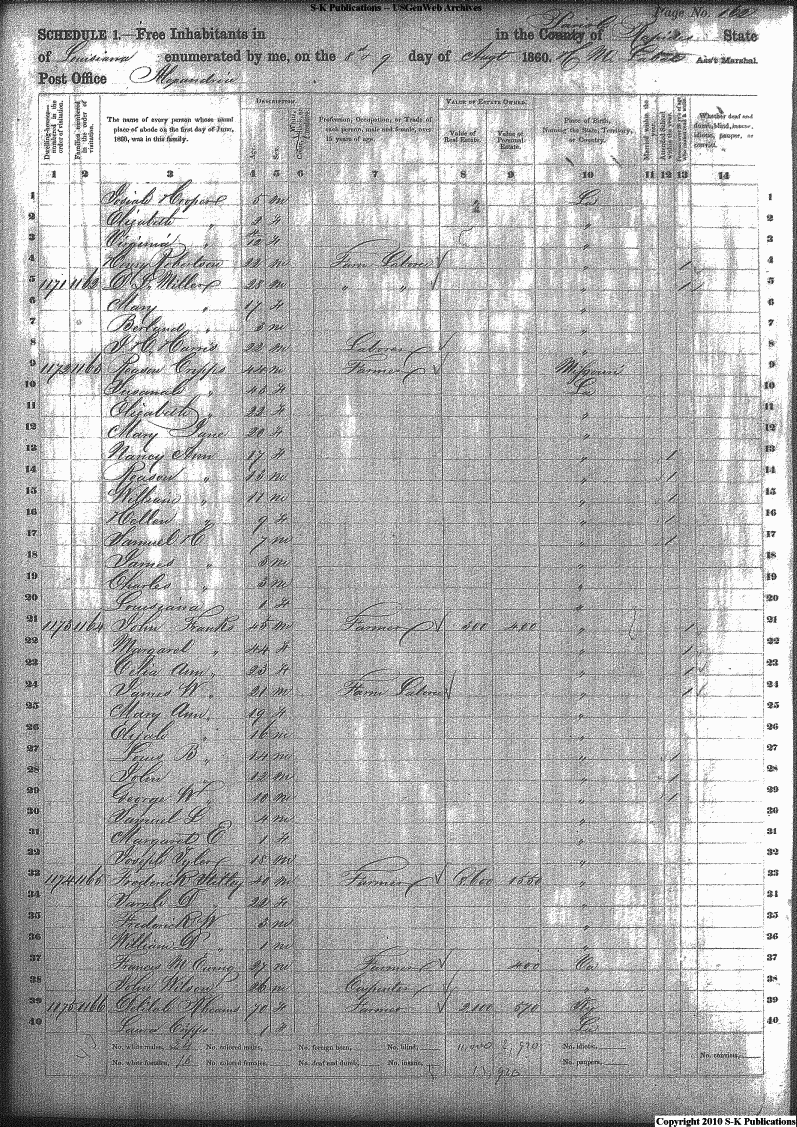 S-K Publications -- USGenWeb Archives
Page No. 162
SCHEDULE 1.—Free Inhabitants in in the County of Parish Rapides State
of Louisiana enumerated by me, on the 8 & 9 day of Augt 1860. Ass't Marshal.
Post Office Alexandria
DESCRIPTION. VALUE OF ESTATE OWNED.
Dwelling-houses numbered in the order of visitation.
Families numbered in the order of visitation.
The name of every person whose usual place of abode on the first day of June, 1860, was in this family.
Age.
Sex.
Profession, Occupation, or Trade of each person, male and female, over 15 years of age.
Value of Real Estate.
Value of Personal Estate.
Place of Birth, Naming the State, Territory, or Country.
Married within the year.
Attended School within the year.
Whether deaf and dumb, blind, insane, idiotic, pauper, or convict.
1 2 3 4 5 6 7 8 9 10 11 12 13 14
1 Josiah Hooper 5 m La 1
2 Elizabeth " f " 2
3 Virginia " f " 3
4 Henry Robertson 22 m Farm Labore " 1 4
5 1171 1162 Miller 28 m " " " 1 5
6 Mary " 17 f " 6
7 Berland " 3 m " 7
8 Harris 22 m Laborer " 8
9 1172 1163 Reason Cripps 44 m Farmer Missouri 9
10 Susanah " 45 f La 10
11 Elizabeth " 22 f " 11
12 Mary Jane " 20 f " 12
13 Nancy Ann " 17 f " 1 13
14 Reason " 13 m " 1 14
15 William " 11 m " 1 15
16 Hellen " 9 f " 1 16
17 Samuel H " 7 m " 1 17
18 James " m " 18
19 Charles " 3 m " 19
20 Louisiana " 1 f " 20
21 1173 1164 John Franks 45 m Farmer 300 400 " 1 21
22 Margaret " 44 f " 1 22
23 Celia Ann " 23 f " 1 23
24 James W " 21 m Farm Labore " 1 24
25 Mary Ann " 19 f " 25
26 Elijah " 16 m " 26
27 Louis B " 14 m " 1 27
28 John " 12 m " 1 28
29 George W " 10 m " 1 29
30 Samuel L " 4 m " 30
31 Margaret E " 1 f " 31
32 Joseph Tyler 18 m " 32
33 1174 1165 Frederick 40 m Farmer 8600 1550 " 33
34 Sarah " 22 f " 34
35 Frederick W " 3 m " 35
36 William " 1 m " 36
37 Francis M 27 m Farmer 400 Ga 37
38 John Wilson 26 m Carpenter " 38
39 1175 1166 70 f Farmer 2100 570 39
40 Laura Cripps 1 f La 40
No. white males, No. colored males, No. foreign born, No. blind, 11,000 2,920 No. idiotic,
No. white females, No. colored females, No. deaf and dumb, No. insane, No. paupers, No. convicts,
Copyright 2010 S-K Publications